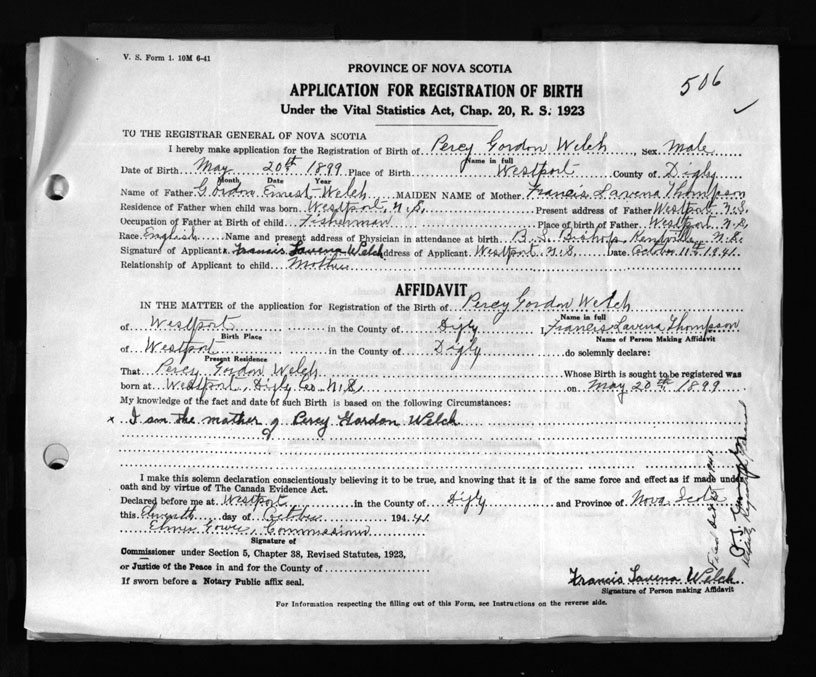 V. S. Form 1. 10M 6-41
506
PROVINCE OF NOVA SCOTIA
APPLICATION FOR REGISTRATION OF BIRTH
Under the Vital Statistics Act, Chap. 20, R. S. 1923
TO THE REGISTRAR GENERAL OF NOVA SCOTIA
I hereby make application for the Registration of Birth of Percy Gordon Welch, Sex Male
Name in full
Date of Birth May 20th 1899 Place of Birth Westport County of Digby
Month Date Year
Name of Father Gordon Ernest Welch MAIDEN NAME of Mother Francis Lavena Thompson
Residence of Father when child was born Westport, N.S. Present address of Father Westport N.S.
Occupation of Father at Birth of child Fisherman Place of birth of Father Westport N.S.
Race English Name and present address of Physician in attendance at birth B. S. Bishop, Kentville N.S.
Signature of Applicant x Francis Lavena Welch Address of Applicant Westport N.S. Date October 11th 1941.
Relationship of Applicant to child Mother
AFFIDAVIT
IN THE MATTER of the application for Registration of the Birth of Percy Gordon Welch
Name in full
of Westport in the County of Digby I, Francis Lavena Thompson
Birth Place Name of Person Making Affidavit
of Westport in the County of Digby do solemnly declare:
Present Residence
That Percy Gordon Welch Whose Birth is sought to be registered was
born at Westport, Digby Co. N.S. on May 20th 1899
My knowledge of the fact and date of such Birth is based on the following Circumstances:
x I am the mother of Percy Gordon Welch
I make this solemn declaration conscientiously believing it to be true, and knowing that it is of the same force and effect as if made under
oath and by virtue of The Canada Evidence Act.
Declared before me at Westport in the County of Digby and Province of Nova Scotia
this Eleventh day of October 194 41
Elmer Gower, Commissioner
Signature of
Commissioner under Section 5, Chapter 38, Revised Statutes, 1923,
or Justice of the Peace in and for the County of
If sworn before a Notary Public affix seal.
Francis Lavena Welch
Signature of Person making Affidavit
For Information respecting the filling out of this Form, see Instructions on the reverse side.